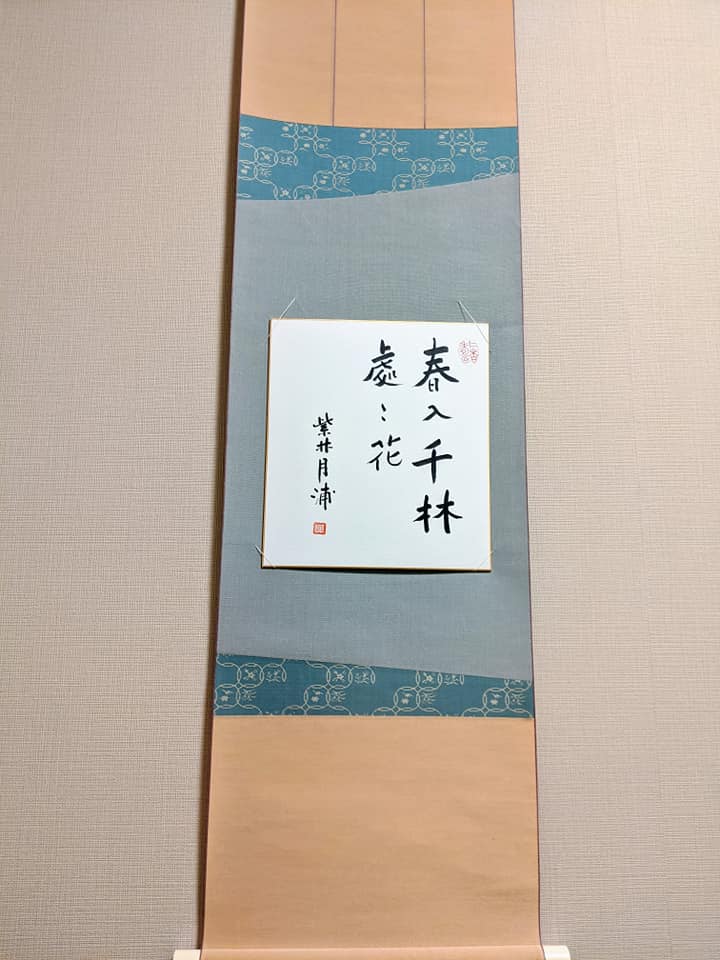 春入千林
處〻花
紫林月浦